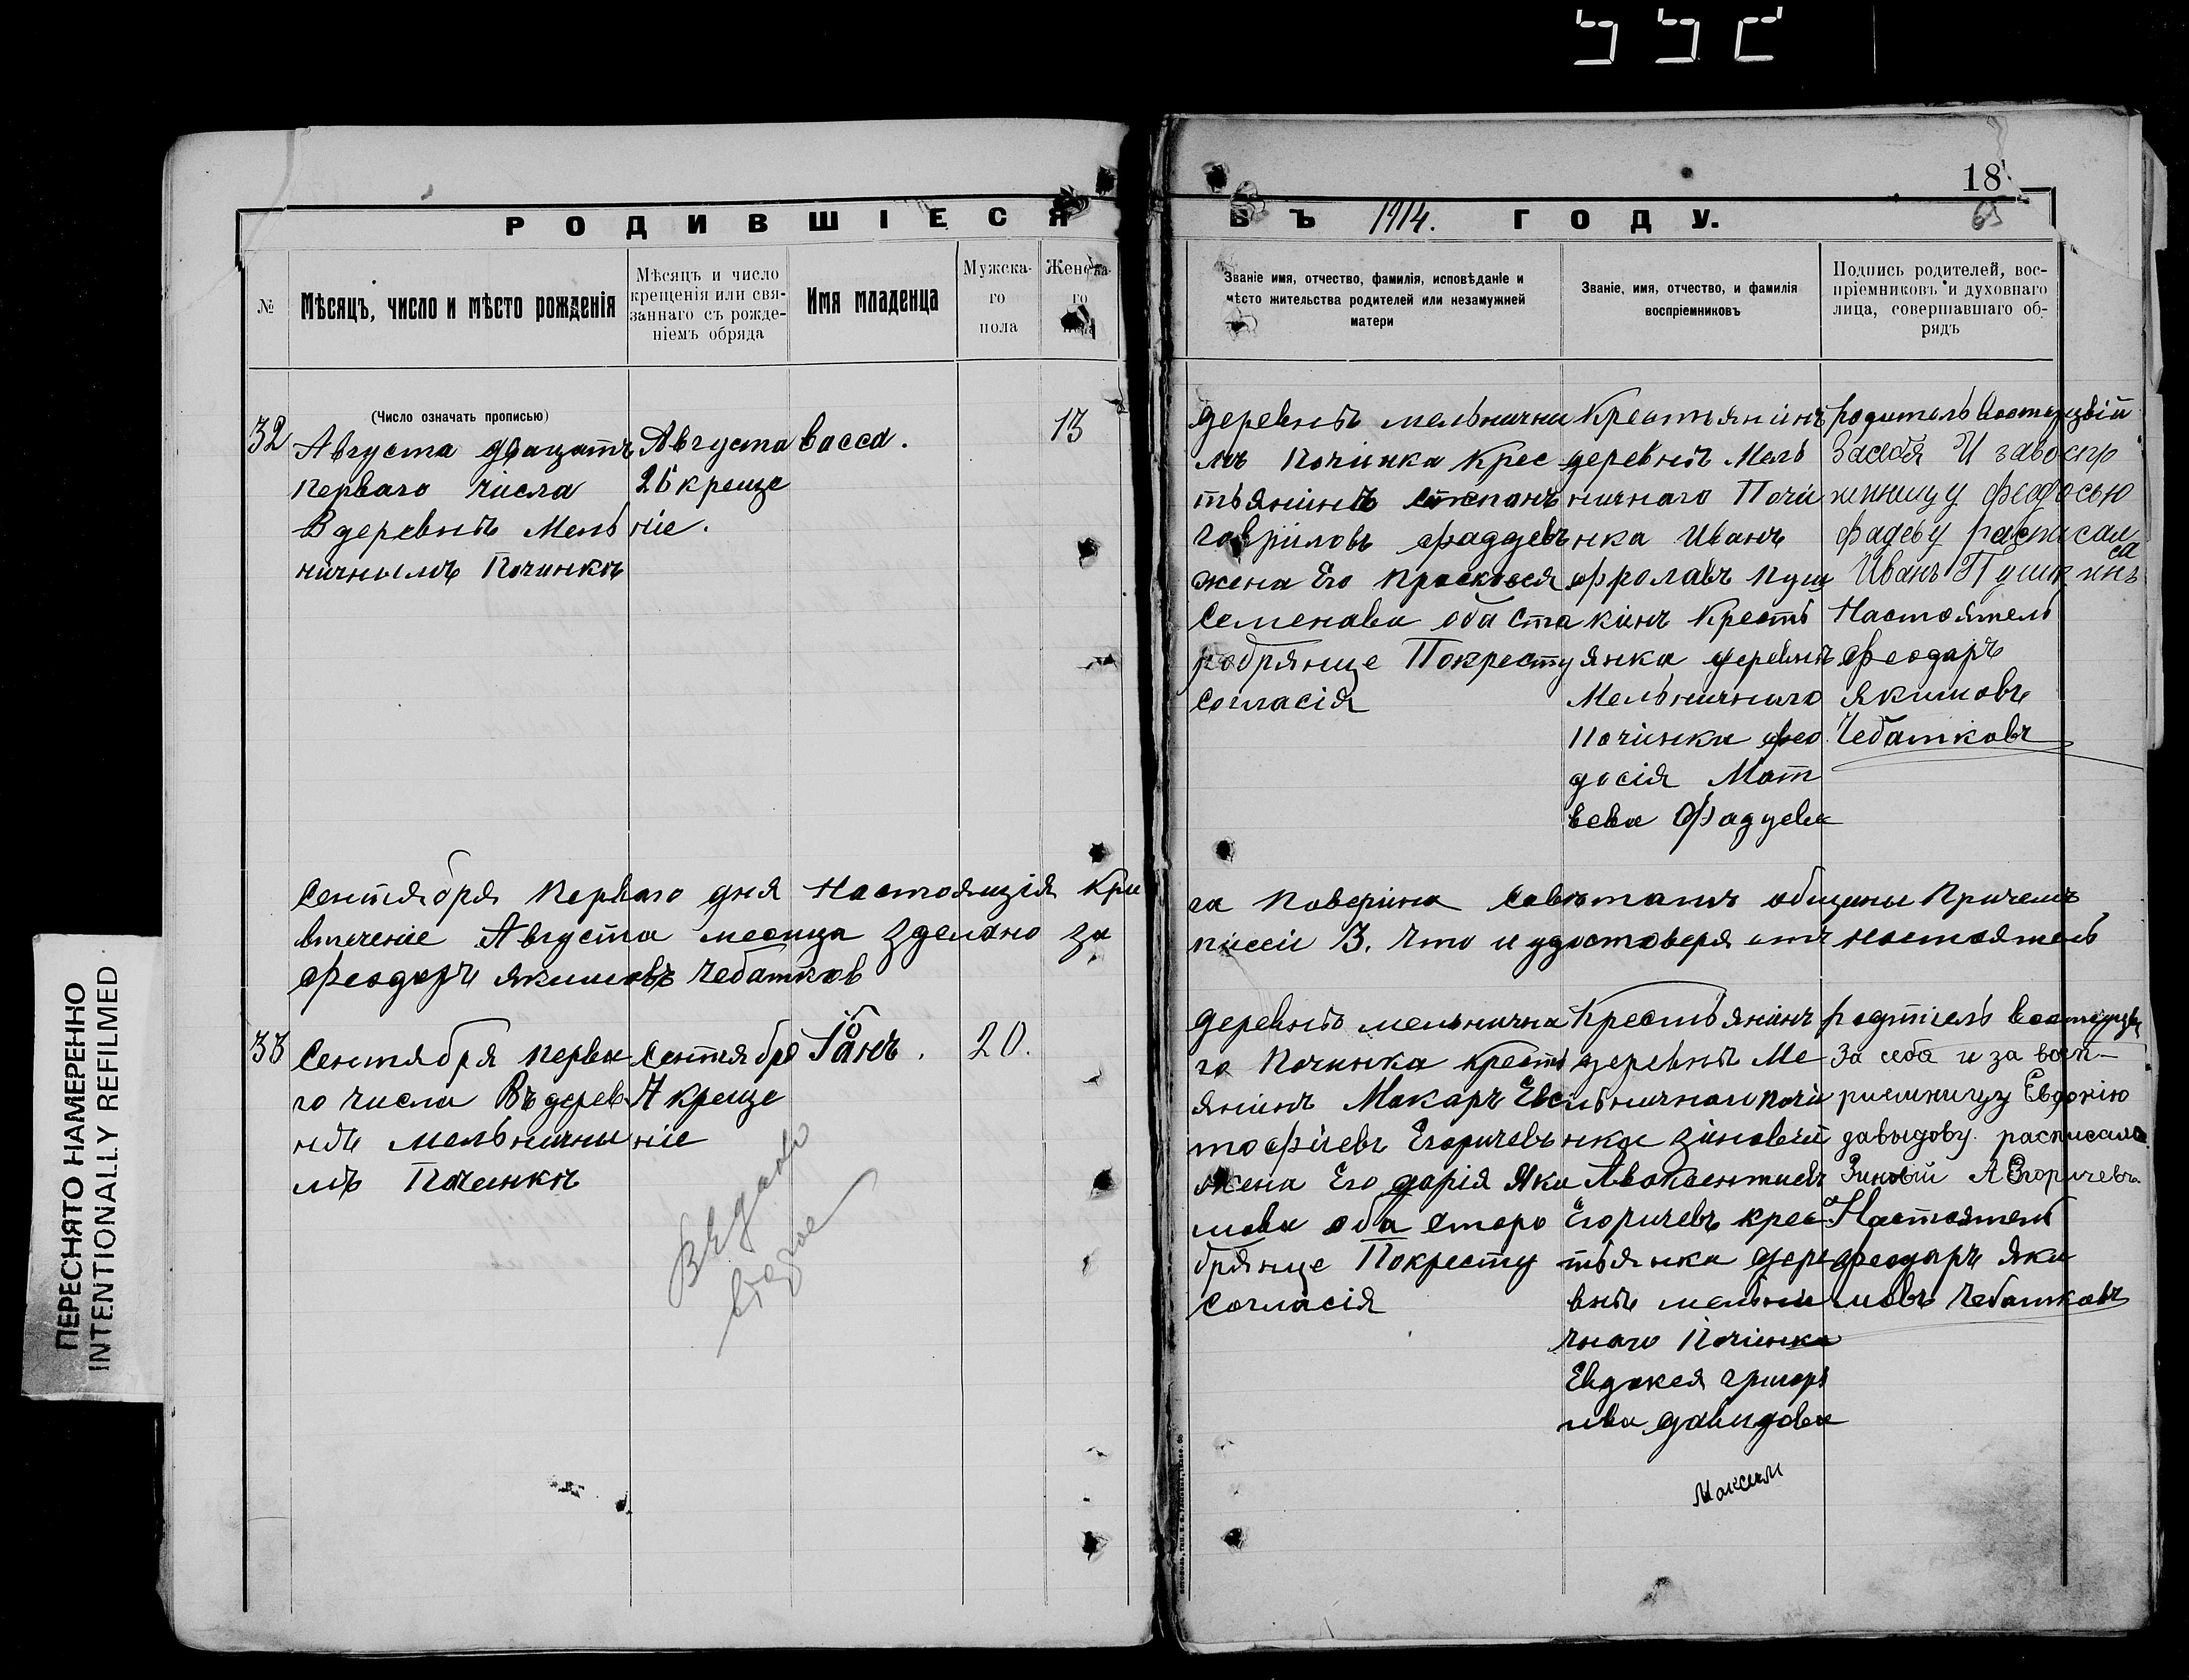 18
65
РОДИВШІЕСЯ
ВЪ 1914. ГОДУ.
№
Мѣсяцъ, число и мѣсто рожденія
Мѣсяцъ и число
крещенія или свя-
заннаго съ рожде-
ніемъ обряда
Имя младенца
Мужска-
го
пола
Женска-
го
пола
Званіе имя, отчество, фамилія, исповѣданіе и
мѣсто жительства родителей или незамужней
матери
Званіе, имя, отчество, и фамилія
воспріемниковъ
Подпись родителей, вос-
пріемниковъ и духовнаго
лица, совершавшаго об-
рядъ
(Число означать прописью)
32
Августа двацать
перваго числа
В деревнѣ Мель
ничнымъ Починкѣ
Августа
26 креще
ніе.
васса.
13
деревнѣ мельнични
мъ Починка Крес
тьянинъ степанъ
гавриловъ фаддевъ
жена Его Просковея
Семенава оба ста
робрянце Покресту
согласія
Крестьянинъ
деревнѣ Мель
ничнаго Почи
нка Иванъ
фролавъ Пуш
кинъ Кресть
янка деревнѣ
Мельничнаго
Починка фео
досія Мат
вева Фадуева
родитель
Засебя И завоспр
иемницу Федосью
фадеву расписал
са
Иванъ Пушкинъ
Настоятель
Феодаръ
Якимовъ
Чебатковъ
Сентября перваго дня Настоящія Кри
га Поверина Советамъ общины Причемъ
втечение Августа месица Зделано за
писеи 3. Что и удостоверяетъ настоятель
Феодоръ Якимовъ Чебатков
33
Сентября перва
го числа Въ дерев
нѣ мельнични
мъ Починкѣ
Сентября
7 креще
ніе
Іоанъ.
20.
деревнѣ мельнична
го Починка крестъ
янинъ Макаръ Евси
тофіевъ Егоричевъ
жена Его дарія Яки
мова оба старо
брянце Покресту
Согласія
Крестьянинъ
деревнѣ Ме
льничнаго почи
нка Зиновей
Авоксентиевъ
Егоричевъ крес
тьянка дере
внѣ мельни
чнаго Починка
Евдокея григорь
ива давидова
родтіель
За себа и за восп-
риемницу Евдокію
давыдову. расписался
Зиновій А Егоричевъ
Настоятель
феодаръ Яки
мовъ Чебатковъ
Выдано
второе
Максим
ПЕРЕСНЯТО НАМЕРЕННО
INTENTIONALLY REFILMED